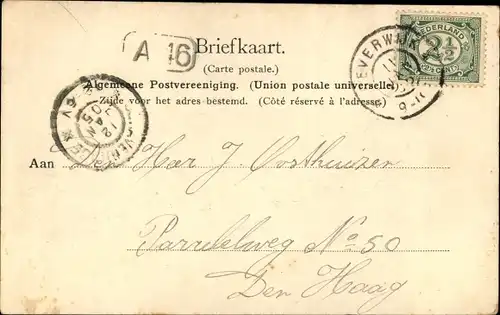 A 16
Briefkaart.
(Carte postale.)
Algemeene Postvereeniging. (Union postale universelle)
Zijde voor het adres bestemd. (Côté réservé à l'adresse)
NEDERLAND
2½
BEVERWIJK
Aan Den Heer J. Oosthuizen
No 50
Den Haag